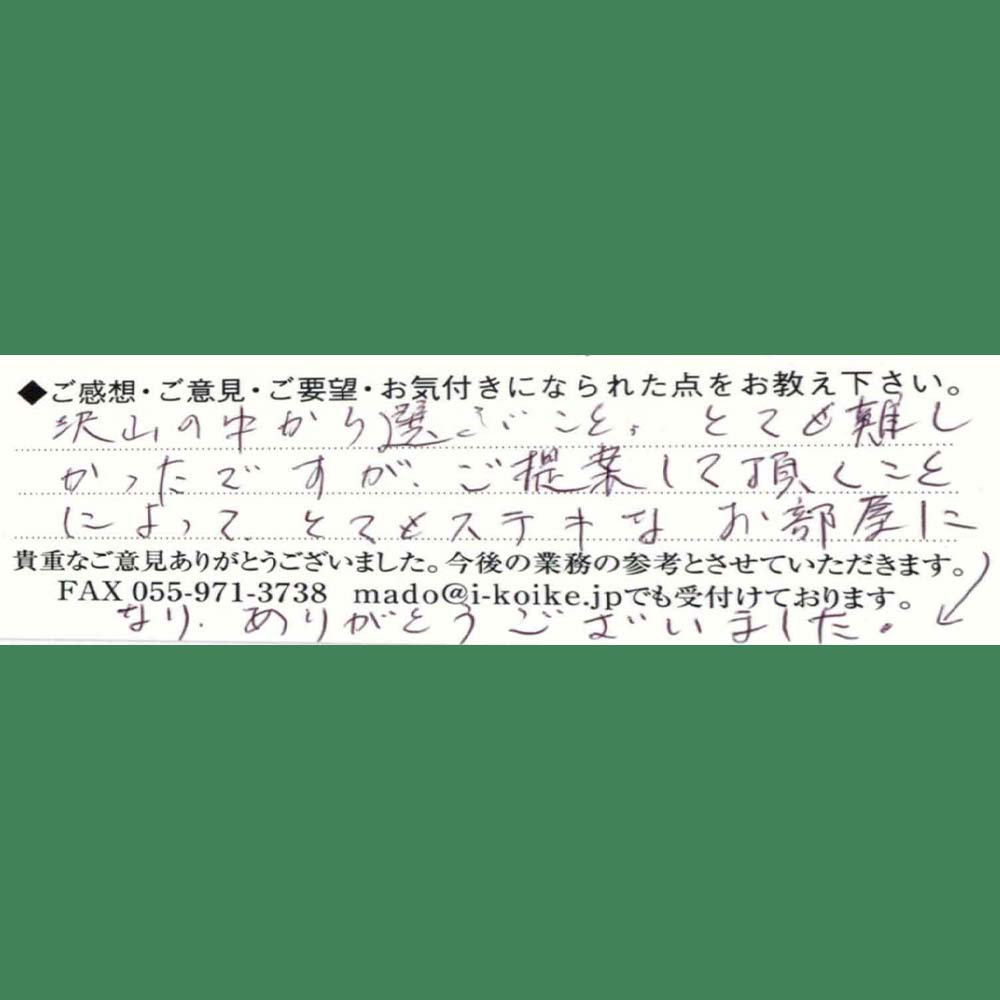 ◆ご感想・ご意見・ご要望・お気付きになられた点をお教え下さい。
沢山の中から選ぶこと、とても難し
かったですが、ご提案して頂くこと
によって、とてもステキなお部屋に
貴重なご意見ありがとうございました。今後の業務の参考とさせていただきます。
FAX 055-971-3738 mado@i-koike.jpでも受付けております。
なり、ありがとうございました。